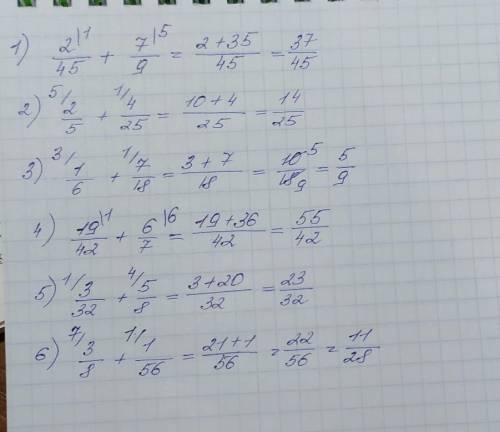 1) 2|1/45 + 7|5/9 = (2+35)/45 = 37/45
2) 5/ 2/5 + 1/ 4/25 = (10+4)/25 = 14/25
3) 3/ 1/6 + 1/ 7/18 = (3+7)/18 = 10-5/18 9 = 5/9
4) 19|1/42 + 6|6/7 = (19+36)/42 = 55/42
5) 1/ 3/32 + 4/ 5/8 = (3+20)/32 = 23/32
6) 7/ 3/8 + 1/ 1/56 = (21+1)/56 = 22/56 = 11/28